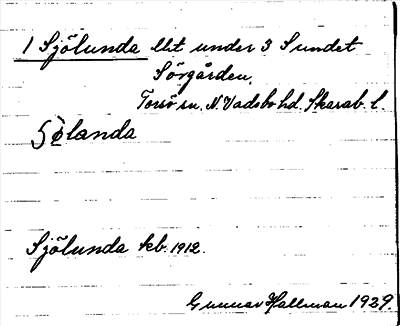 1 Sjölunda lht under 3 Sundet
Sörgården,
Torsö sn, N. Vadsbo hd. Skarab. l.
Sö̀landa
Sjölunda kb. 1912.
Gunnar Hallman 1929.